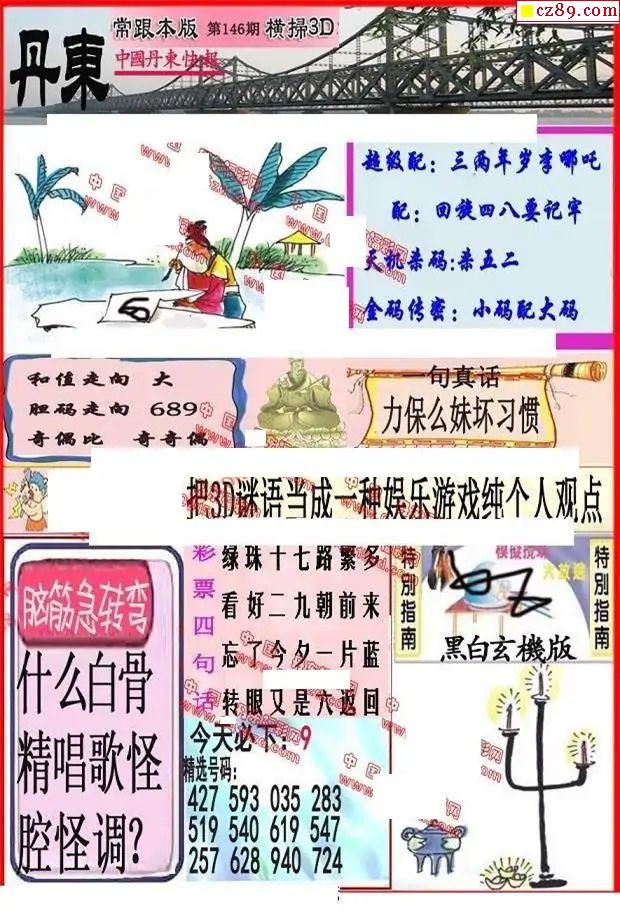 cz89.com
常跟本版 第146期 横掃3D
丹東
中國丹東快報
超级配：三两年岁李哪吒
配：回旋四八要记牢
天机杀码:杀五二
金码传密：小码配大码
6
和值走向 大
胆码走向 689
奇偶比 奇奇偶
一句真话
力保么妹坏习惯
把3D谜语当成一种娱乐游戏纯个人观点
脑筋急转弯
什么白骨
精唱歌怪
腔怪调?
彩票四句话
绿珠十七路繁多
看好二九朝前来
忘了今夕一片蓝
转眼又是六返回
今天必下：9
精选号码：
427 593 035 283
519 540 619 547
257 628 940 724
特别指南
模拟搅珠
大放送
特別指南
黑白玄機版